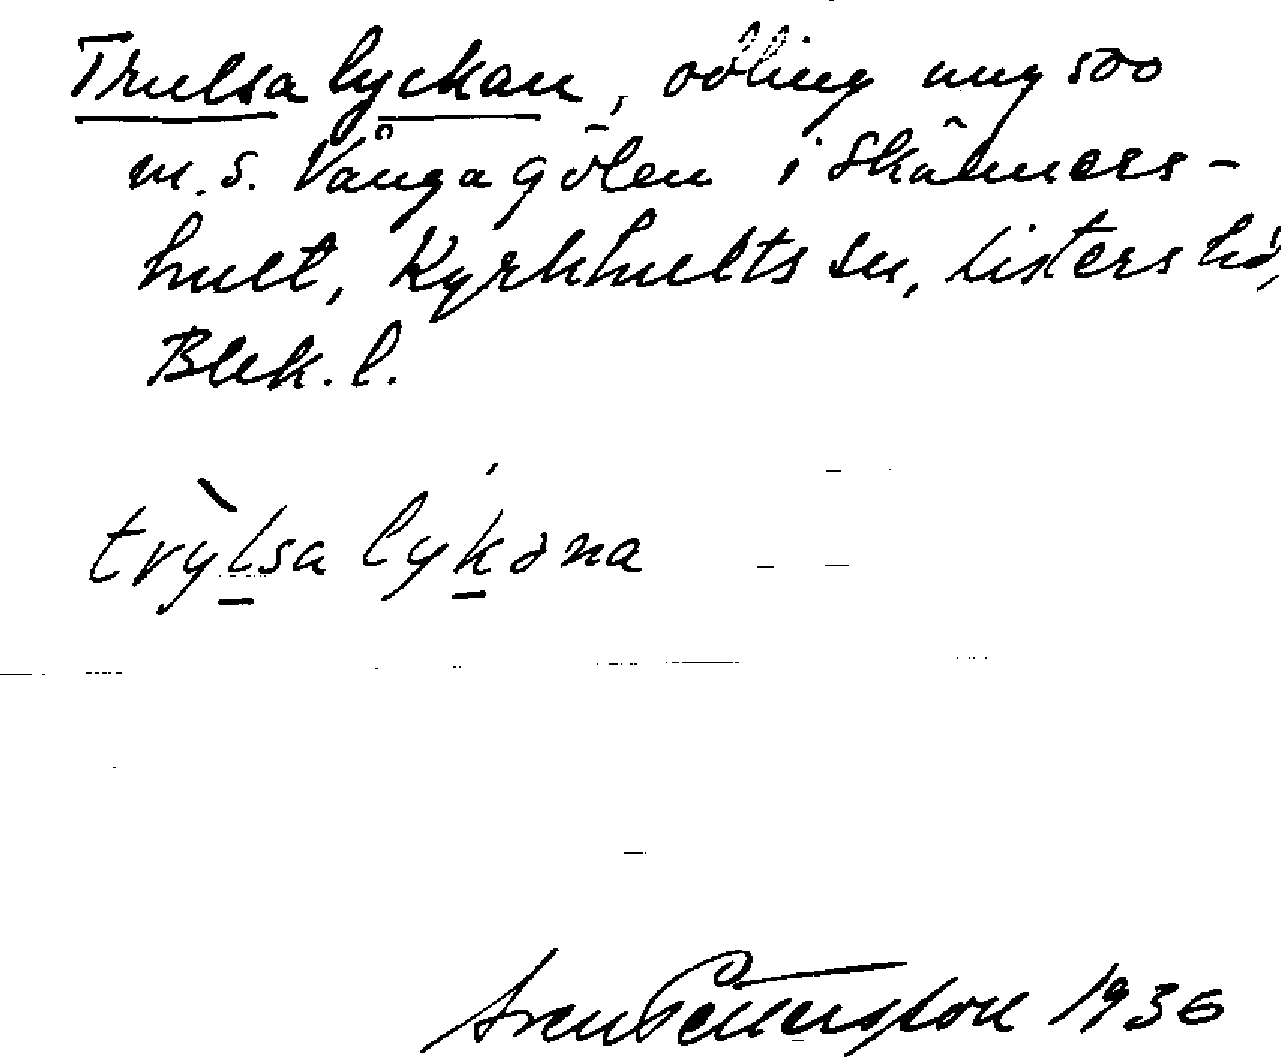 Trulsa lyckan, odling ung 500
m. S. Vångagölen i Skänners-
hult, Kyrkhults sn, Listers hd,
Blek. l.
trỳlsa lykəna
Sven Pettersson 1936